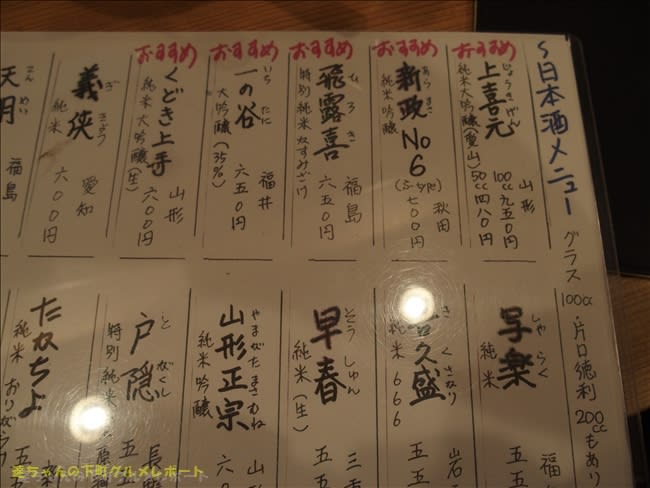 ～日本酒メニュー
グラス100cc・片口徳利200ccもあり
おすすめ
上喜元
じょうきげん
純米大吟醸(愛山)
山形
100cc九五〇円
50cc四八〇円
おすすめ
新政No6
あらまさ
純米吟醸
(S-type)
秋田
七〇〇円
おすすめ
飛露喜
ひろき
特別純米かすみざけ
福島
七五〇円
おすすめ
一の谷
いちたに
大吟醸(35%)
福井
六五〇円
おすすめ
くどき上手
純米大吟醸(生)
山形
六〇〇円
義侠
ぎきょう
純米
愛知
六〇〇円
天明
てんめい
福島
写楽
しゃらく
純米
福
五五
久盛
さくさなり
純米666
山石
五五
早春
そうしゅん
純米(生)
三
五五
山形正宗
やまがたまさむね
純米吟醸
山形
六〇
戸隠
とがくし
特別純米
長
五五
たかちよ
純米おりがらみ
五
逹ちゃんの下町グルメレポート